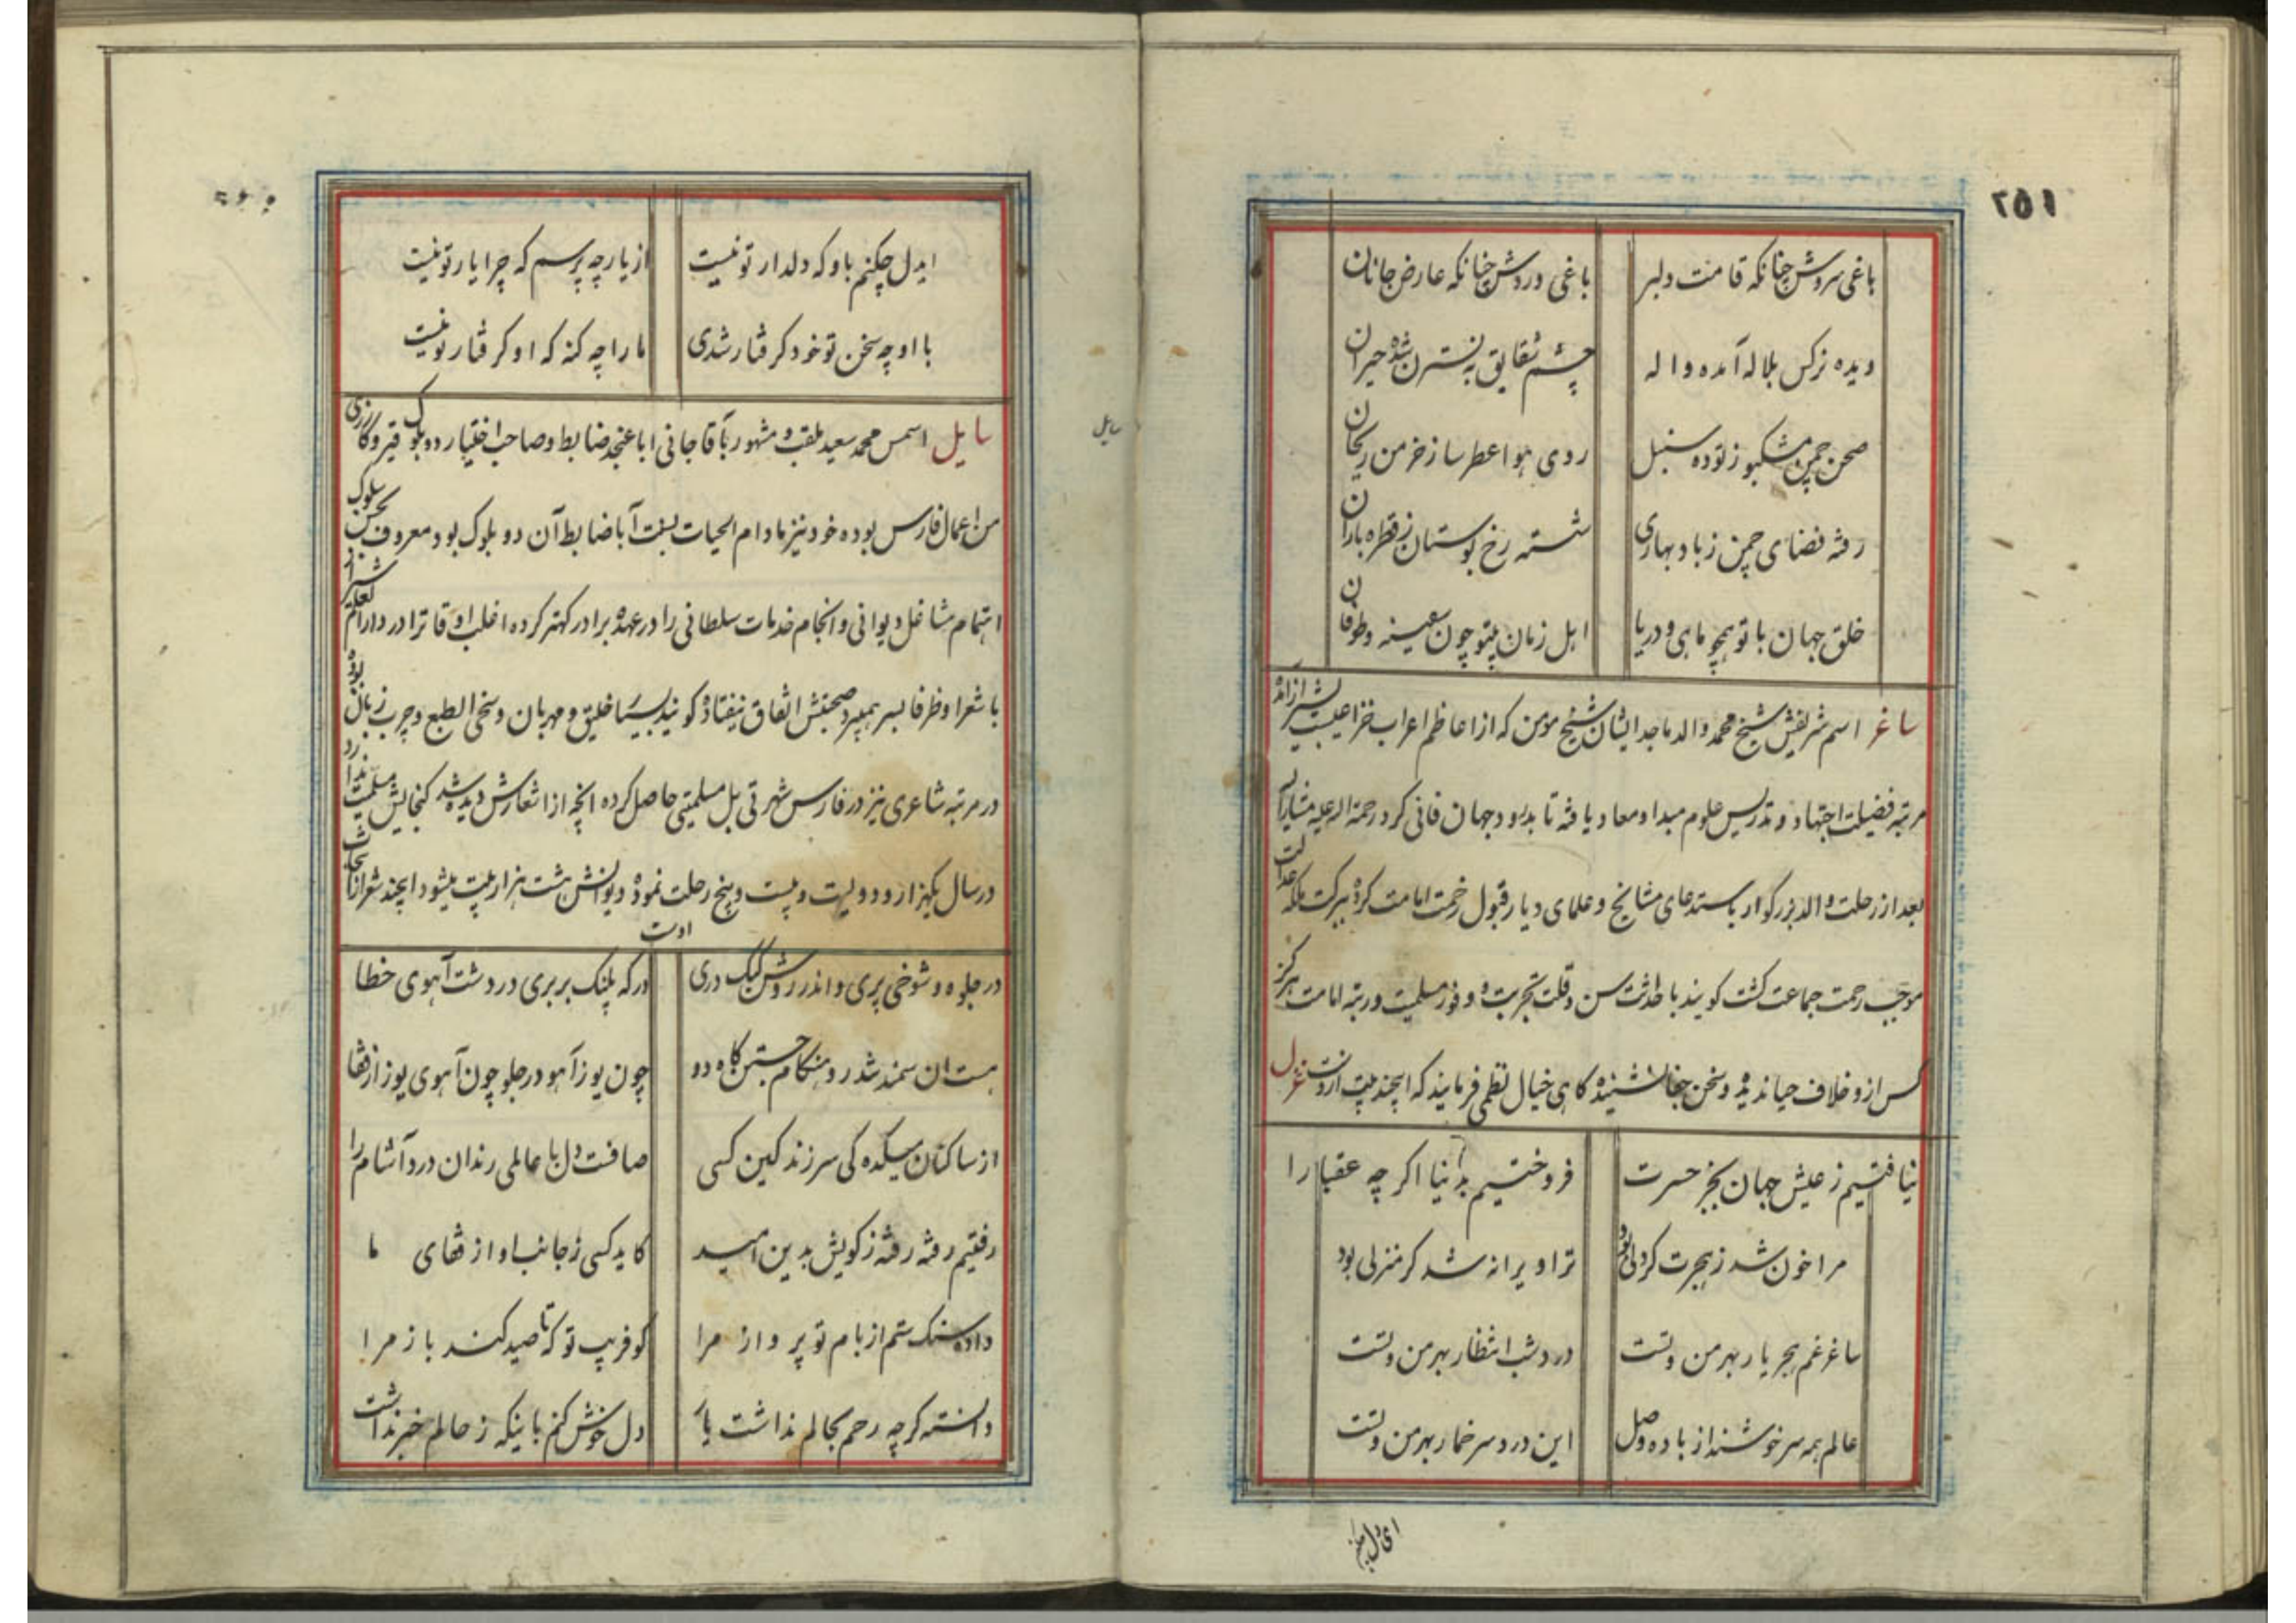 ٢٥١
باغی سروش چنانکه قامت دلبر باغی وردش چنانکه عارض جانان
دیده نرکس بلاله آمده واله چشم شقایق به نسترن شده حیران
صحن چمن مشکبو ز توده سنبل روی هوا عطرسا ز خرمن ریحان
رفته فضای چمن ز باد بهاری شسته رخ بوستان ز قطره باران
خلق جهان با تو همچو ماهی و دریا اهل زمان بیتو چون سفینه و طوفان
ساغر اسم شریفش شیخ محمد والد ماجد ایشان شیخ مومن که از اعاظم اعراب خزاعیست بشیراز آمده
مرتبه فضیلت اجتهاد و تدریس علوم مبدا و معاد یافته تا بدرود جهان فانی کرد رحمة اله علیه مشارالیه
بعد از رحلت والد بزرکوار باستدعای مشایخ و علمای دیار قبول زحمت امامت کرده ببرکت ملکه عدالت
موجب رحمت جماعت کشت کویند با حداثت سن و قلت تجربت و وفور مسلمیت و رتبه امامت هرکز
کس ازو خلاف حیا ندیده و سخن جفا نشنیده کاهی خیال نظمی فرمایند که اینچند بیت ازوست غزل
نیافتیم ز عیش جهان بجز حسرت فروختیم بدنیا اکرچه عقبا را
مرا خون شد ز هجرت کر دلی بود ترا ویرانه شد کر منزلی بود
ساغر غم هجر یار بهر من و تست درد شب انتظار بهر من و تست
عالم همه سرخوشند از باده وصل این درد سر خمار بهر من و تست
ای دل چکنم
ایدل چکنم باو که دلدار تو نیست از یار چه پرسم که چرا یار تو نیست
با او چه سخن تو خود کرفتار شدی ما را چه کنه که او کرفتار تو نیست
سایل
سایل اسمس محمد سعید ملقب و مشهور بآقا جانی ابا عنجد ضابط و صاحب اختیار دو بلوک قیر و کارزی
من اعمال فارس بوده خود نیز مادام الحیات بسنت آبا ضابط آن دو بلوک بود معروف بحسن سلوک
اهتمام مشاغل دیوانی و انجام خدمات سلطانی را در عهده برادر کهتر کرده اغلب اوقاترا در دارالعلم شیراز
با شعرا و ظرفا بسر همیبرد صحبتش اتفاق نیفتاده کویند بسیار خلیق و مهربان و سخی الطبع و چرب زبان بوده
در مرتبه شاعری نیز در فارس شهرتی بل مسلمیتی حاصل کرده انچه از اشعارش دیده شد کنجایش مسلمیت ندارد
در سال یکهزار و دویست و بیست و پنج رحلت نموده دیوانش هشت هزار بیت میشود اینچند شعر از نتایجات
اوست
در جلوه و شوخی پری و اندر روش کبک دری در که پلنک بربری در دشت آهوی خطا
هست ان سمند تندرو هنکام جستن کاه دو چون یوز آهو در جلو چون آهوی یوز از قفا
از ساکنان میکده کی سر زند کین کسی صافست دل با عالمی رندان درد آشام را
رفتیم رفته رفته ز کویش بدین امید کاید کسی ز جانب او از قفای ما
داده سنک ستم از بام تو پرواز مرا کو فریب تو که تا صید کند باز مرا
دانسته کرچه رحم بحالم نداشت یار دل خوش کنم باینکه ز حالم خبر نداشت